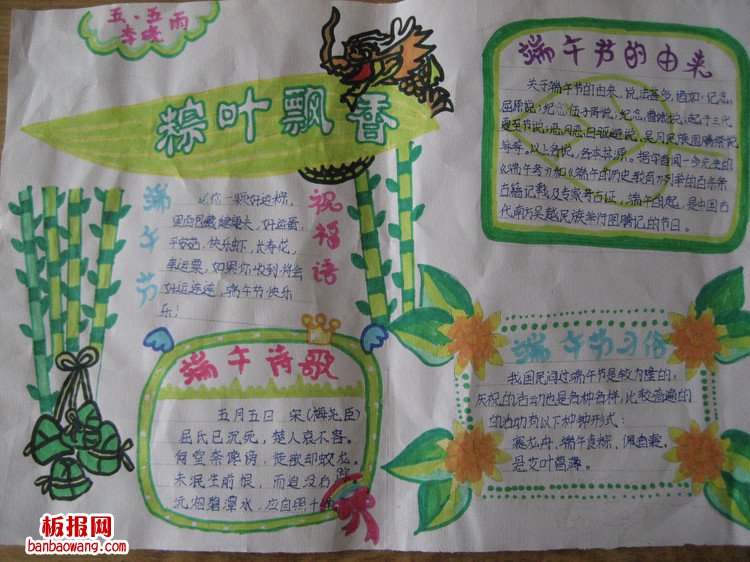 五.五雨
李晓
粽叶飘香
端午节
祝福语
送你一颗好运粽,
里面包藏健康 好运蛋,
平安菇,快乐虾,长寿花,
幸运栗,如果你收到将会
好运连连,端午节快乐
乐!
端午诗歌
五月五日 宋(梅尧臣)
屈氏已沉死,楚人哀不容。
何尝奈谗谤,徒欲却蛟龙。
未泯生前恨,而追没后踪
沅湘碧潭水,应自照千
端午节的由来
关于端午节的由来,说法甚多,诸如:纪念
屈原说;纪念伍子胥说;纪念曹娥说;起于三代
夏至节说;恶月恶日驱避说,吴月民族图腾祭说
等等。以上各说,各本其源。据学者闻一多先生的
《端午考》和《端午的历史教育》列举的百余条
古籍记载及专家考古证,端午的起,是中国古
代南方吴越民族举行图腾记的节日。
端午节习俗
我国民间过端午节是较为隆的,
庆祝的活动也是各种各样,比较普遍的
的活动有以下种种形式:
赛龙舟,端午食粽,佩香囊,
悬艾叶菖蒲。
板报网
banbaowang.com